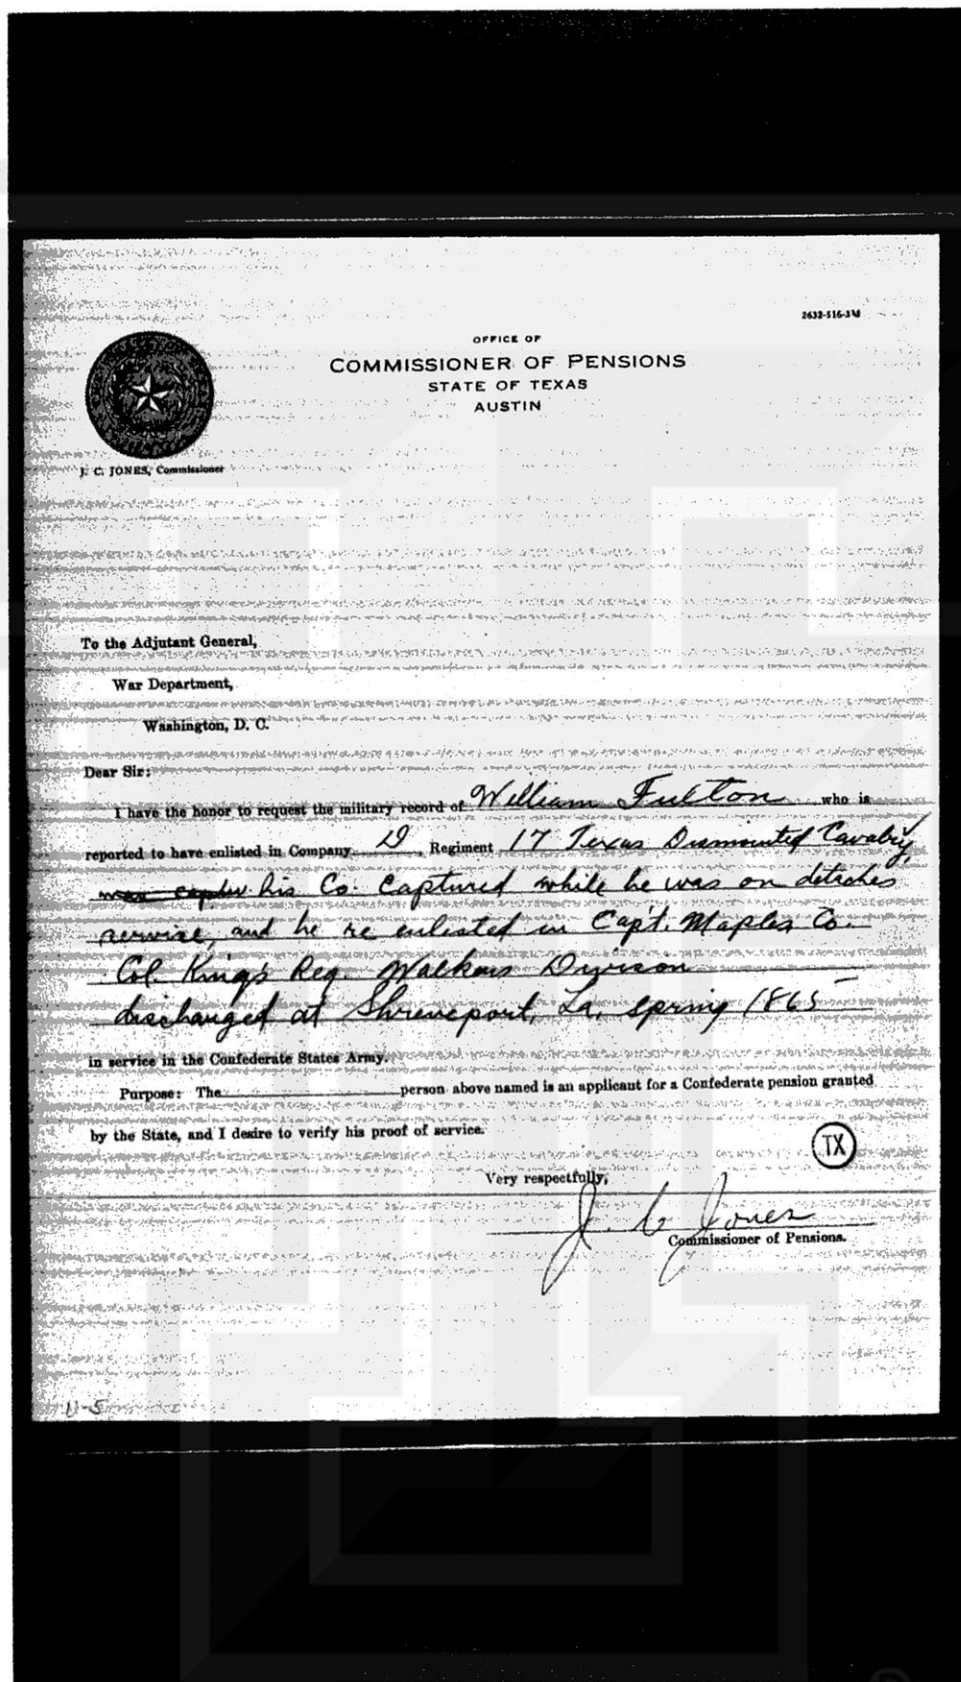 2632-516-3M
OFFICE OF
COMMISSIONER OF PENSIONS
STATE OF TEXAS
AUSTIN
J. C. JONES, Commissioner
To the Adjutant General,
War Department,
Washington, D. C.
Dear Sir:
I have the honor to request the military record of William Fulton who is
reported to have enlisted in Company D, Regiment 17 Texas Dismounted Cavalry,
was his Co. Captured while he was on detaches
service, and he re enlisted in Capt. Maples Co.
Col. Kings Reg. Walkers Divison
discharged at Shreveport, La, spring 1865
in service in the Confederate States Army.
Purpose: The person above named is an applicant for a Confederate pension granted
by the State, and I desire to verify his proof of service.
TX
Very respectfully,
J. C. Jones
Commissioner of Pensions.
11-5